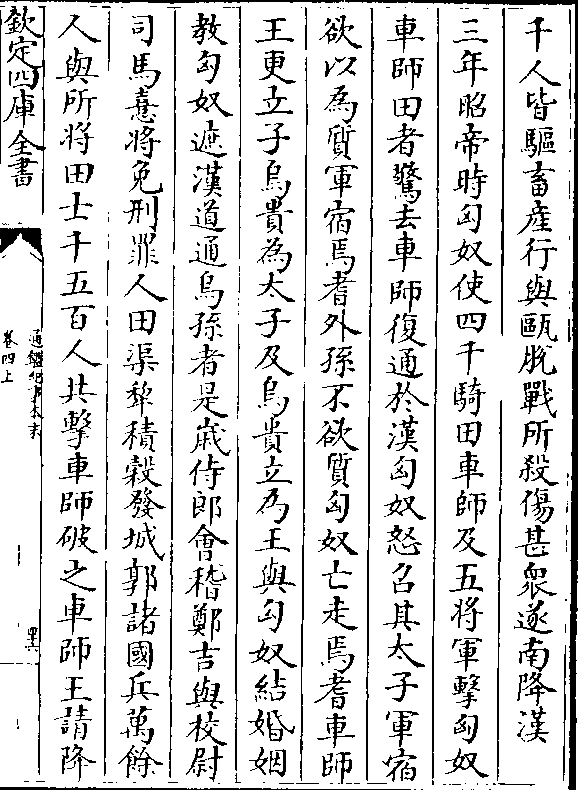 千人皆驅畜產行與甌脫戰所殺傷甚衆遂南降漢
三年昭帝時匈奴使四千騎田車師及五將軍擊匈奴
車師田者驚去車師復通於漢匈奴怒召其太子軍宿
欲以為質軍宿焉耆外孫不欲質匈奴亡走焉耆車師
王更立子烏貴為太子及烏貴立為王與匈奴結婚姻
教匈奴遮漢道通烏孫者是歲侍郎會稽鄭吉與校尉
司馬憙將免刑罪人田渠犂積穀發城郭諸國兵萬餘
人與所將田士千五百人共擊車師破之車師王請降
欽定四庫全書
通鑑紀事本末
卷四上